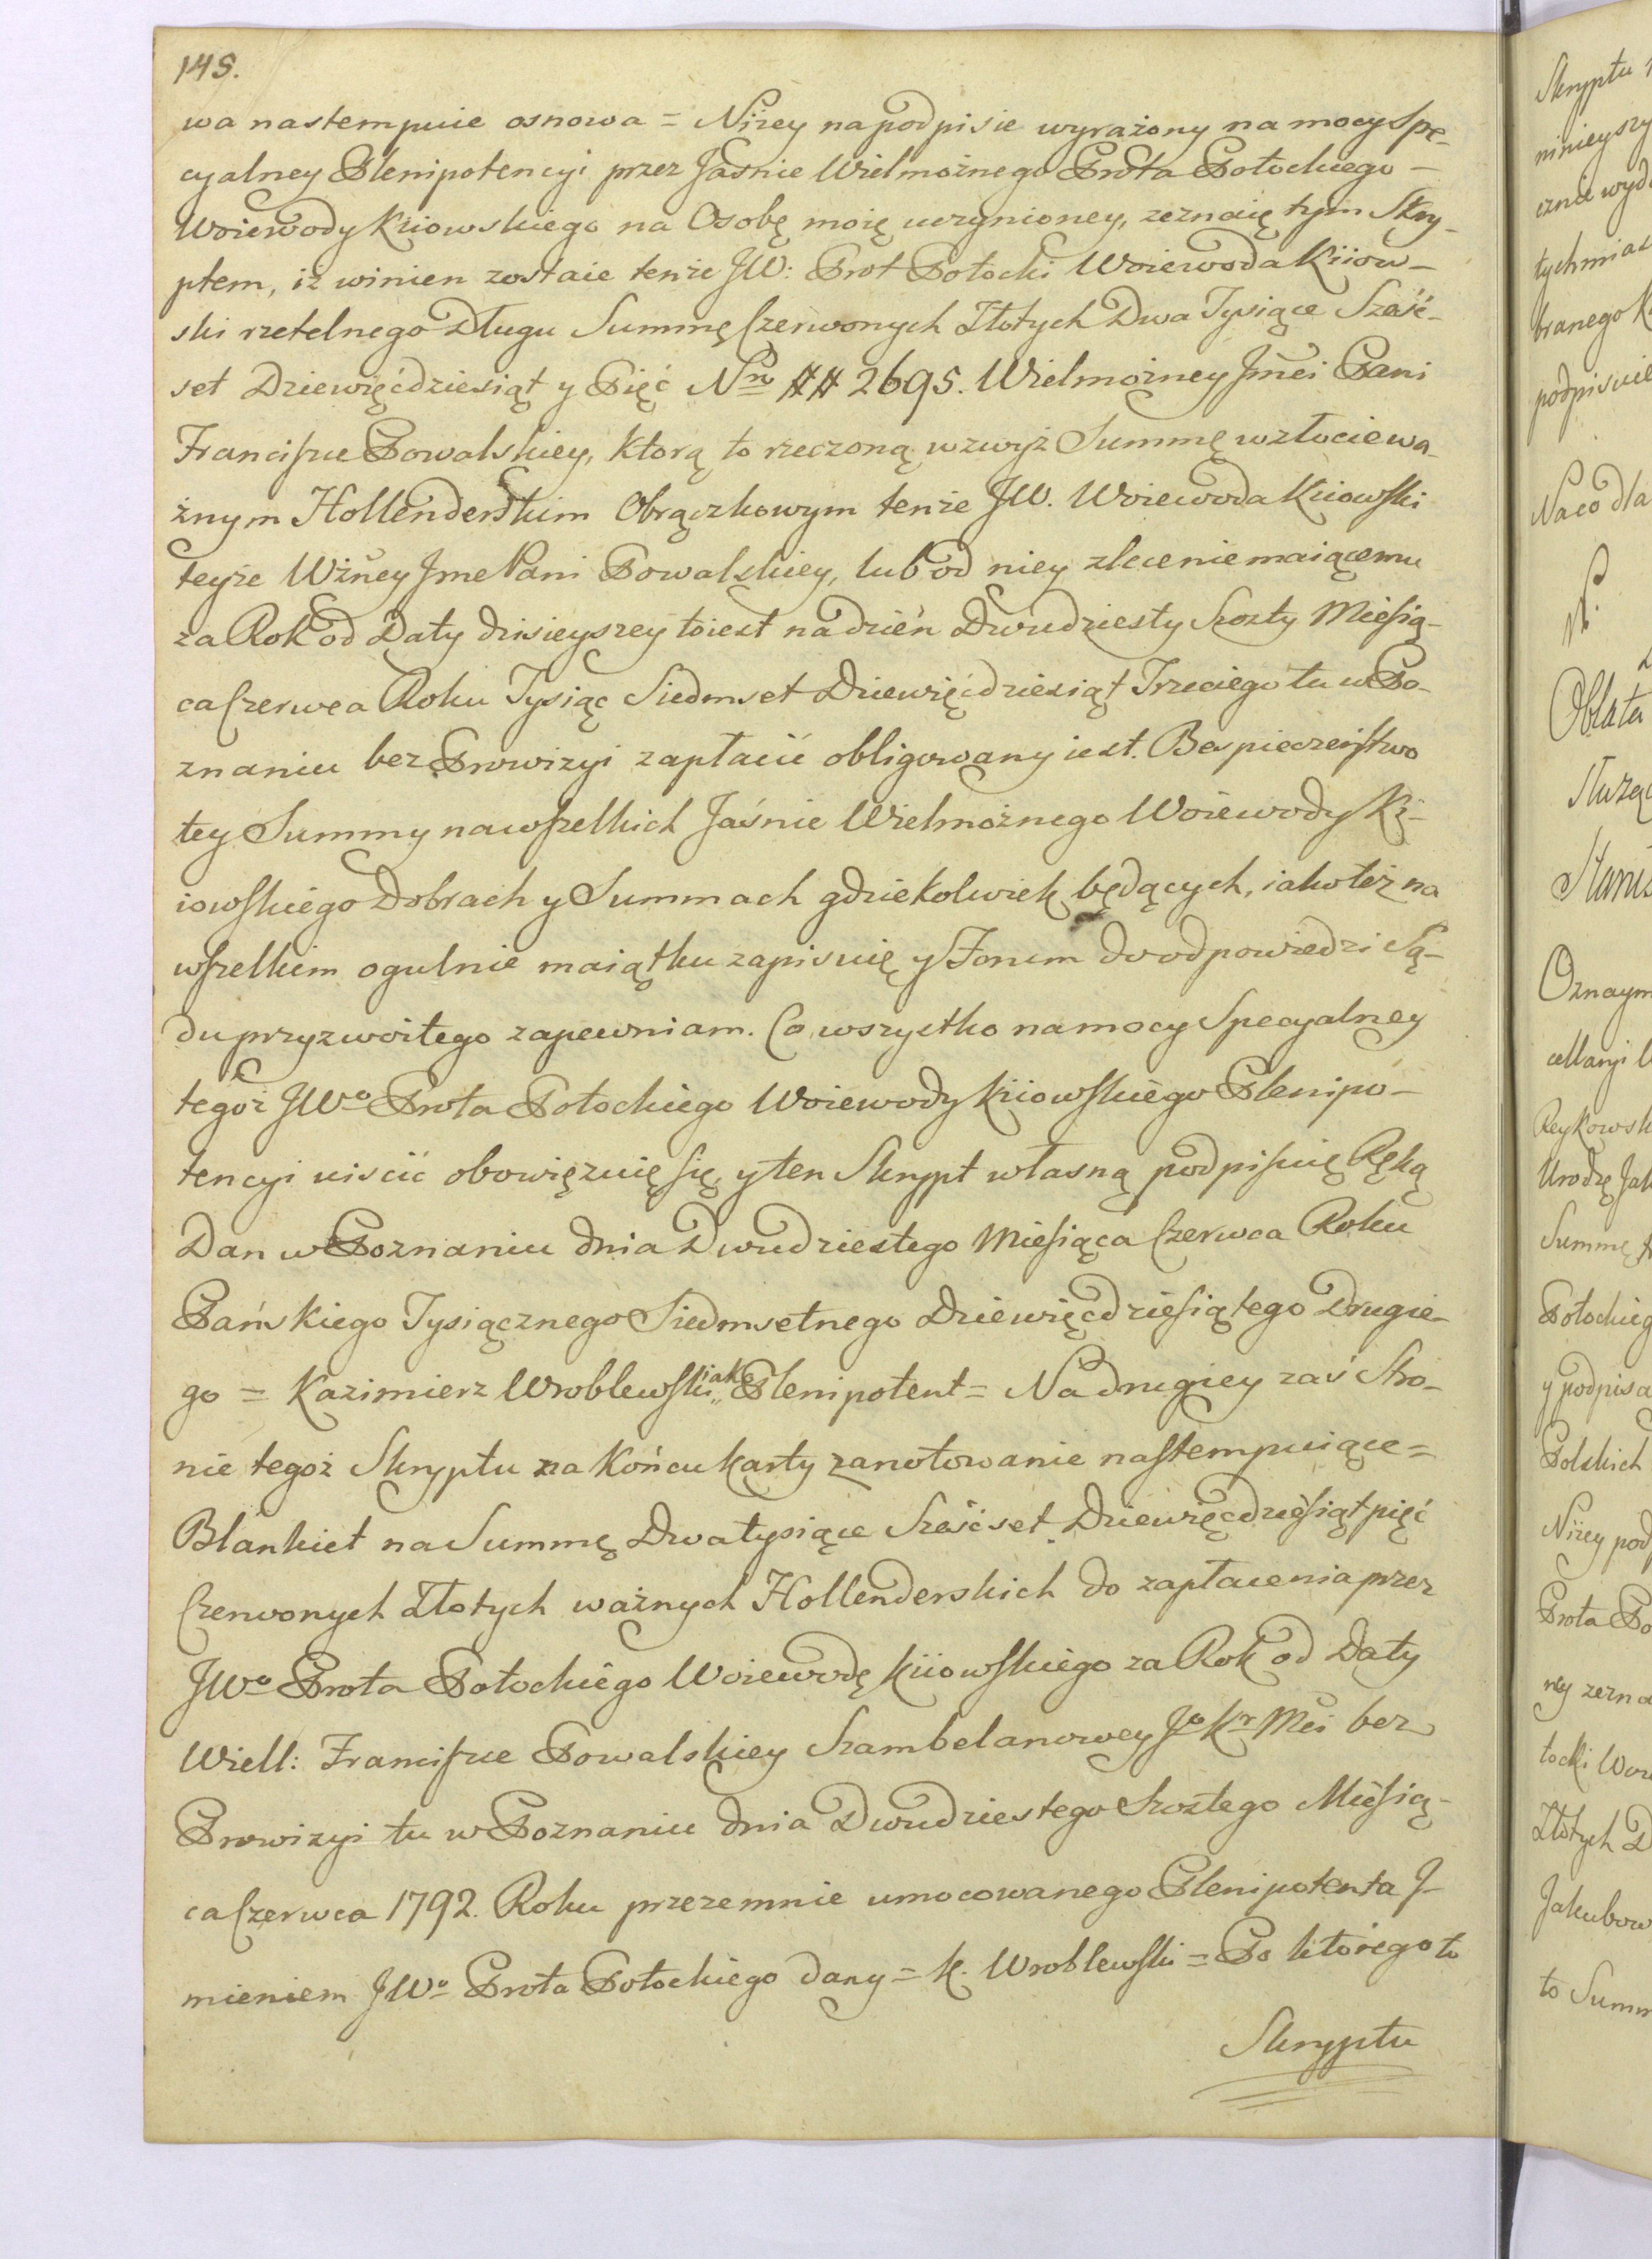 148.
wa nastempuie osnowa = Niżey na podpisie wyrażony na mocy Spe-
cyalney Plenipotencyi przez Jaśnie Wielmożnego Prota Potockiego -
Woiewody Kiiowskiego na Osobę moię uczynioney, zeznaię tym Skry-
ptem, iż winien zostaie tenże JW: Prot Potocki Woiewoda Kiiow-
ski rzetelnego Długu Summę Czerwonych Złotych Dwa Tysiące Sześć-
set Dziewięćdziesiąt y Pięć Nro ## 2695. Wielmożney Jmći Pani
Franciszce Powalskiey, którą to rzeczoną wzwyż Summę w złocie wa-
żnym Hollenderskim Obrączkowym tenże JW. Woiewoda Kiiowski
teyże Wżney Jme Pani Powalskiey, lub od niey zlecenie maiącemu
za Rok od Daty dzisieyszey to iest na dzień Dwudziesty Szosty Miesią-
ca Czerwca Roku Tysiąc Siedmset Dziewięćdziesiąt Trzeciego tu w Po-
znaniu bez Prowizyi zapłacić obligowany iest. Bespieczeństwo
tey Summy na wszelkich Jaśnie Wielmożnego Woiewody Ki-
iowskiego Dobrach y Summach gdziekolwiek będących, iako też na
wszelkim ogulnie maiątku zapisuię y Forum do odpowiedzi Są-
du przyzwoitego zapewniam. Co wszystko na mocy Specyalney
tegoż JWo Prota Potockiego Woiewody Kiiowskiego Plenipo-
tencyi uiścić obowięzuię się, y ten Skrypt własną podpisuię Ręką
Dan w Poznaniu dnia Dwudziestego Miesiąca Czerwca Roku
Pańskiego Tysiącznego Siedmsetnego Dziewięćdziesiątego Drugie-
go = Kazimierz Wroblewski iako Plenipotent = Na drugiey zaś Stro-
nie tegoż Skryptu na Końcu karty zanotowanie nastempuiące =
Blankiet na Summę Dwa tysiące Sześćset Dziewięćdziesiąt pięć
Czerwonych Złotych ważnych Hollenderskich do zapłacenia przez
JWo Prota Potockiego Woiewodę Kiiowskiego za Rok od Daty
Wiell: Franciszce Powalskiey Szambelanowey Jo Kr Mci bez
Prowizyi tu w Poznaniu dnia Dwudziestego Szostego Miesią-
ca Czerwca 1792. Roku przezemnie umocowanego Plenipotenta J-
mieniem JWo Prota Potockiego dany = K. Wroblewski = Po którego to
Skryptu
Skryptu
ninieyszy
cznie wyd
tychmias
branego K
podpisuie
Na co dla
Oblata
Służąc
Stanis
Oznaym
cellaryi
Reykowsk
Urodzę Jak
Summę
Potockieg
y podpisa
Polskich
Niżey pod
Prota Po
ney zezna
tocki Woie
Złotych D
Jakubow
to Summ